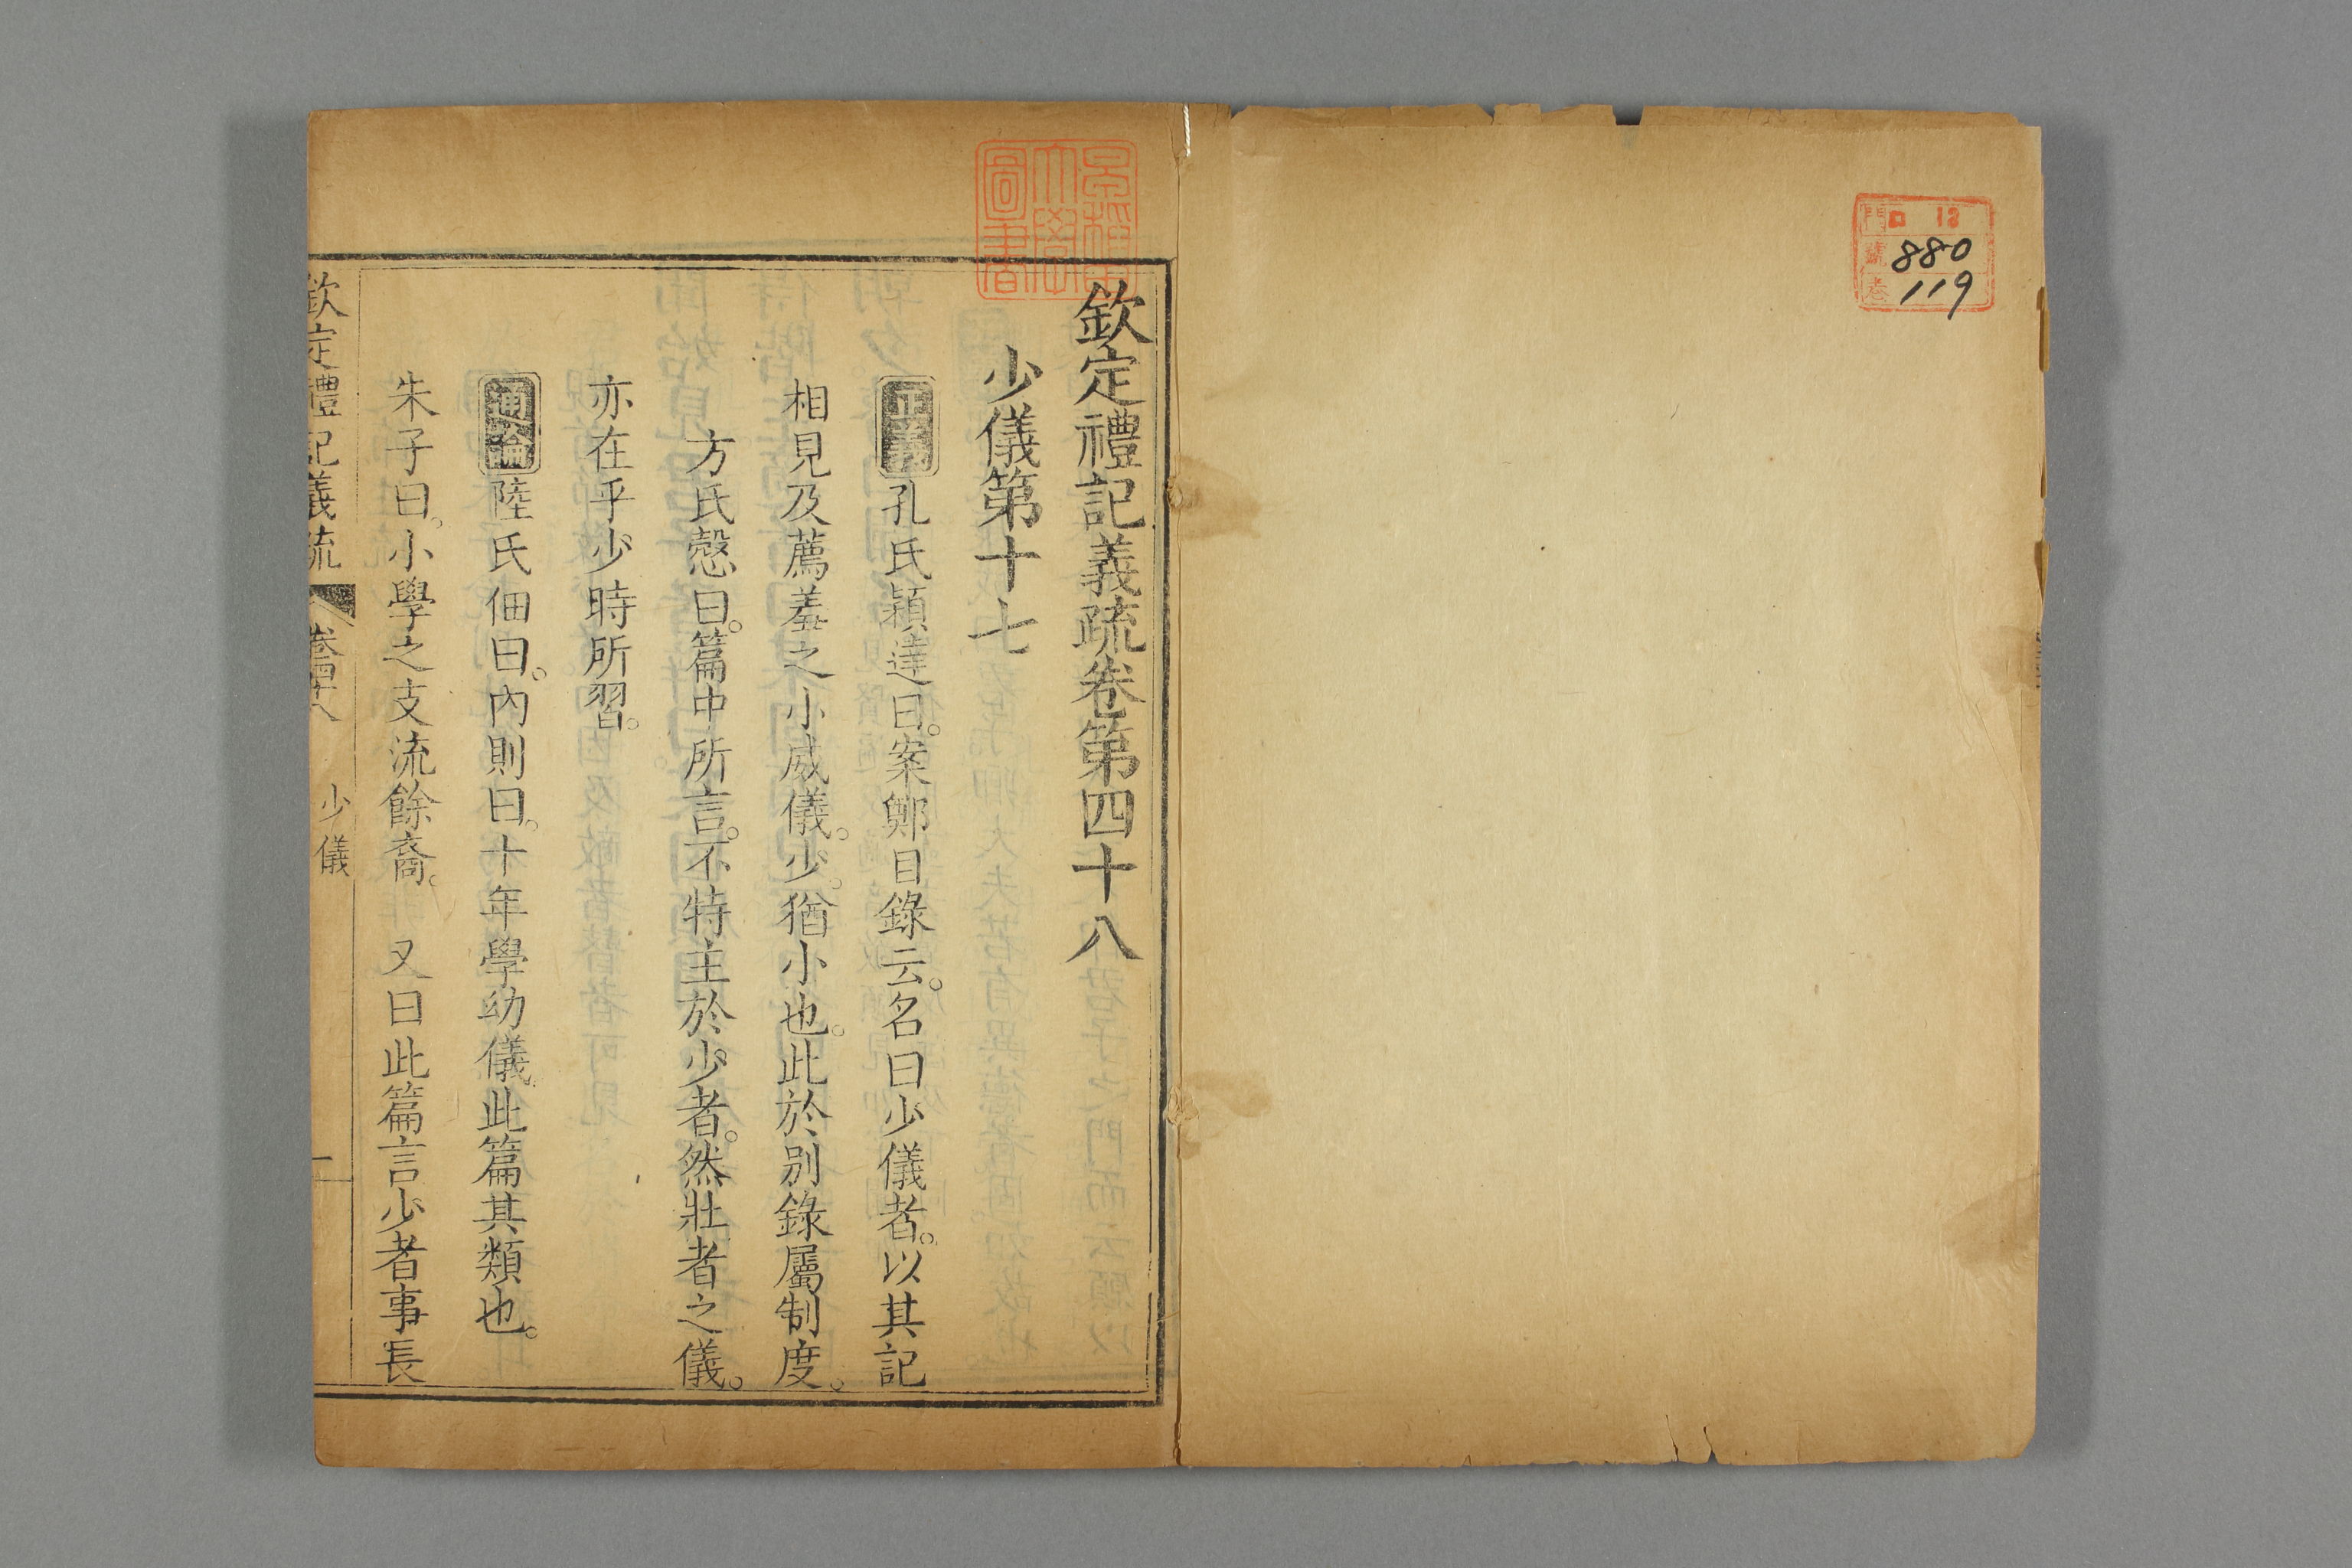 門 ロ 12
號 880
卷 119
早稲田大學圖書
欽定禮記義疏卷第四十八
少儀第十七
正義孔氏穎達曰。案鄭目錄云。名曰少儀者。以其記
相見及薦羞之小威儀。少。猶小也。此於別錄屬制度。
方氏慤曰。篇中所言。不特主於少者。然壯者之儀。
亦在乎少時所習。
通論陸氏佃曰。內則曰。十年學幼儀。此篇其類也。
朱子曰。小學之支流餘裔。 又曰此篇言少者事長
欽定禮記義疏 卷四十八 少儀 一